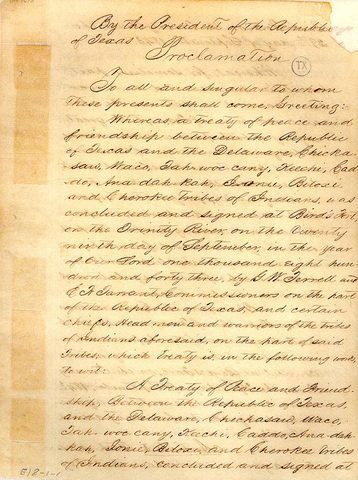 By the President of the Republic
of Texas
Proclamation
IX
To all and singular to whom
these presents shall come, Greeting:
Whereas, a treaty of peace and
friendship between the Republic
of Texas and the Delaware, Chicka-
saw, Waco, Tah-woc cany, Keechi, Cad-
do, Ana-dah-kah, Ionie, Biloxi
and Cherokee tribes of Indians, was
concluded and signed at Bird's Fort,
on the Trinity River, on the twenty
ninth day of September, in the year
of Our Lord one thousand eight hun-
dred and forty three, by G. W. Terrell and
E. H. Tarrant, Commissioners on the part
of the Republic of Texas, and certain
chiefs, Head men and warriors of the tribes
of Indians aforesaid, on the part of said
tribes, which treaty is, in the following words,
to wit:
A Treaty of Peace and Friend-
ship, Between the Republic of Texas,
and the Delaware, Chickasaw, Waco,
Tah-woc cany, Keechi, Caddo, Ana-dah-
kah, Ionie, Biloxi, and Cherokee tribes
of Indians, concluded and signed at